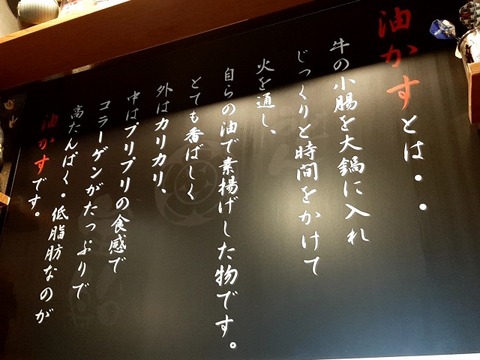 油かすとは・・
牛の小腸を大鍋に入れ
じっくりと時間をかけて
火を通し、
自らの油で素揚げした物です。
とても香ばしく
外はカリカリ、
中はプリプリの食感で
コラーゲンがたっぷりで
高たんぱく・低脂肪なのが
油かすです。